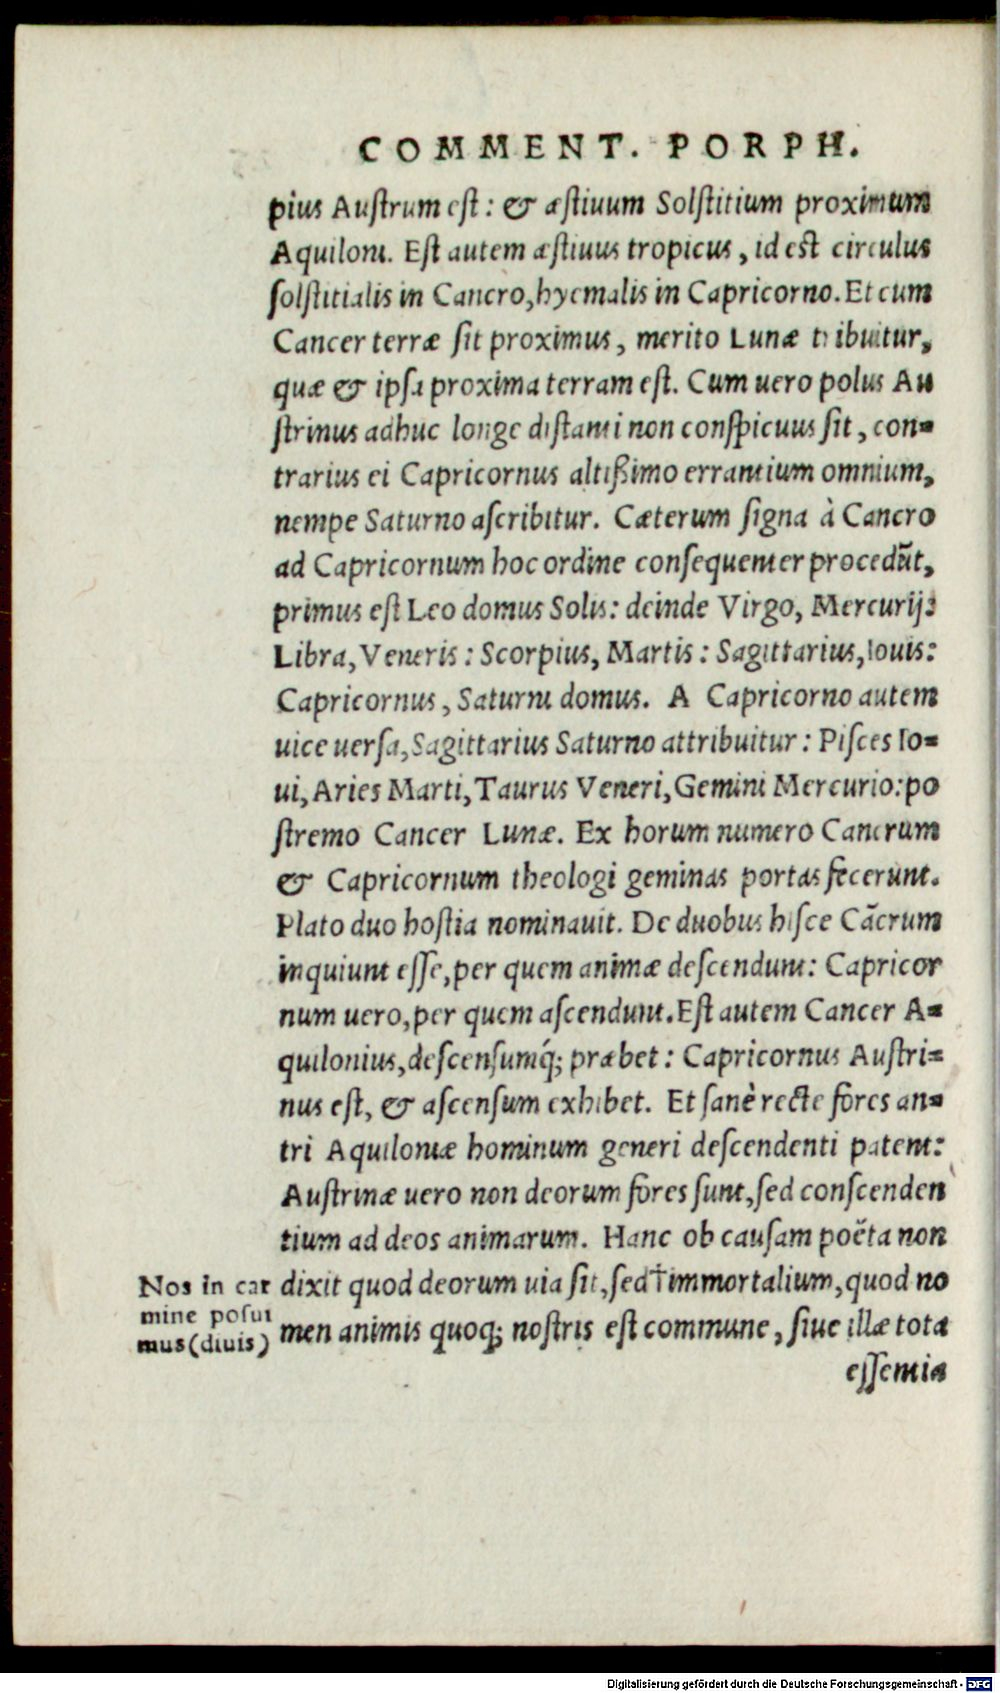 COMMENT. PORPH.
pius Auſtrum eſt: & æſtiuum Solſtitium proximum
Aquiloni. Eſt autem æſtiuus tropicus, id eſt circulus
ſolſtitialis in Cancro, hyemalis in Capricorno. Et cum
Cancer terræ ſit proximus, merito Lunæ tribuitur,
quæ & ipſa proxima terram eſt. Cum uero polus Au
ſtrinus adhuc longe diſtanti non conſpicuus ſit, con-
trarius ei Capricornus altißimo errantium omnium,
nempe Saturno aſcribitur. Cæterum ſigna à Cancro
ad Capricornum hoc ordine conſequenter procedũt,
primus eſt Leo domus Solis: deinde Virgo, Mercurij:
Libra, Veneris: Scorpius, Martis: Sagittarius, Iouis:
Capricornus, Saturni domus. A Capricorno autem
uice uerſa, Sagittarius Saturno attribuitur: Piſces Io-
ui, Aries Marti, Taurus Veneri, Gemini Mercurio: po
ſtremo Cancer Lunæ. Ex horum numero Cancrum
& Capricornum theologi geminas portas fecerunt.
Plato duo hoſtia nominauit. De duobus hiſce Cãcrum
inquiunt eſſe, per quem animæ deſcendunt: Capricor
num uero, per quem aſcendunt. Eſt autem Cancer A-
quilonius, deſcenſumq́; præbet: Capricornus Auſtri-
nus eſt, & aſcenſum exhibet. Et ſanè recte fores an-
tri Aquiloniæ hominum generi deſcendenti patent:
Auſtrinæ uero non deorum fores ſunt, ſed conſcenden
tium ad deos animarum. Hanc ob cauſam poëta non
dixit quod deorum uia ſit, ſed † immortalium, quod no
men animis quoq; noſtris eſt commune, ſiue illæ tota
eſſentia
Nos in car
mine poſui
mus (diuis)
Digitalisierung gefördert durch die Deutsche Forschungsgemeinschaft - DFG